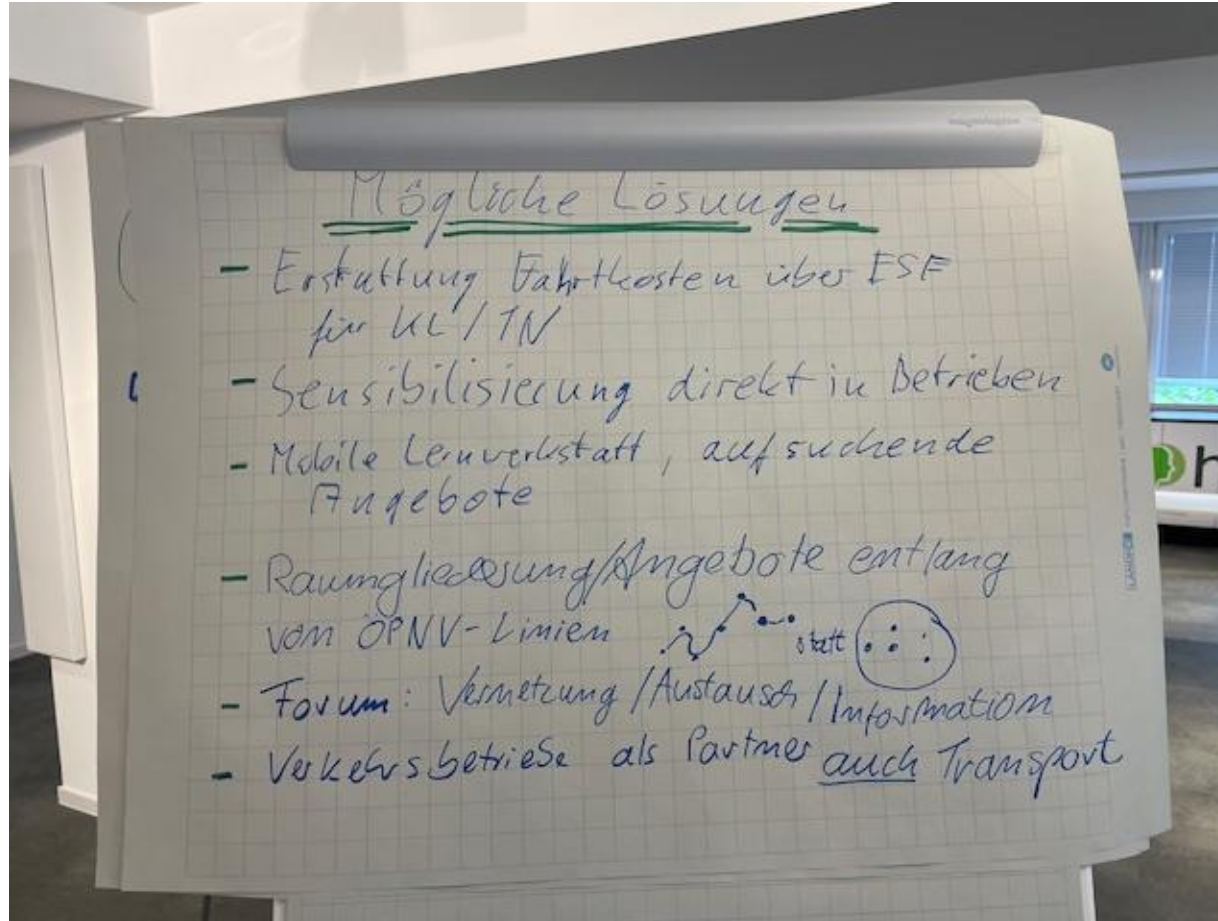 Mögliche Lösungen
- Erstattung Fahrtkosten über ESF
für KL / TN
- Sensibilisierung direkt in Betrieben
- Mobile Lernwerkstatt, aufsuchende
Angebote
- Raumgliederung/Angebote entlang
von ÖPNV-Linien statt
- Forum: Vernetzung / Austausch / Information
- Verkehrsbetriebe als Partner auch Transport